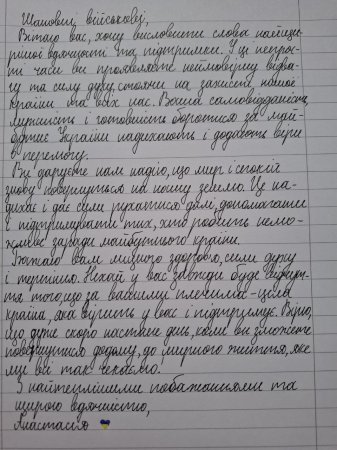 Шановні військові,
Вітаю вас, хочу висловити слова найщи-
рішої вдячності та підтримки. У ці непрос-
ті часи ви проявляєте неймовірну відва-
гу та силу духу, стоячи на захисті нашої
країни та всіх нас. Ваша самовідданість,
мужність і готовність боротися за май-
бутнє України надихають і додають віри
в перемогу.
Ви даруєте нам надію, що мир і спокій
знову повернуться на нашу землю. Це на-
дихає і дає сили рухатися далі, допомагати
і підтримувати тих, хто робить немо-
жливе заради майбутнього країни.
Бажаю вам міцного здоров'я, сили духу
і терпіння. Нехай у вас завжди буде відчут-
тя того, що за вашими плечима - ціла
країна, яка вірить у вас і підтримує. Вірю,
що дуже скоро настане день, коли ви зможете
повернутися додому, до мирного життя, яке
ми всі так чекаємо.
З найтеплішими побажаннями та
щирою вдячністю,
Анастасія